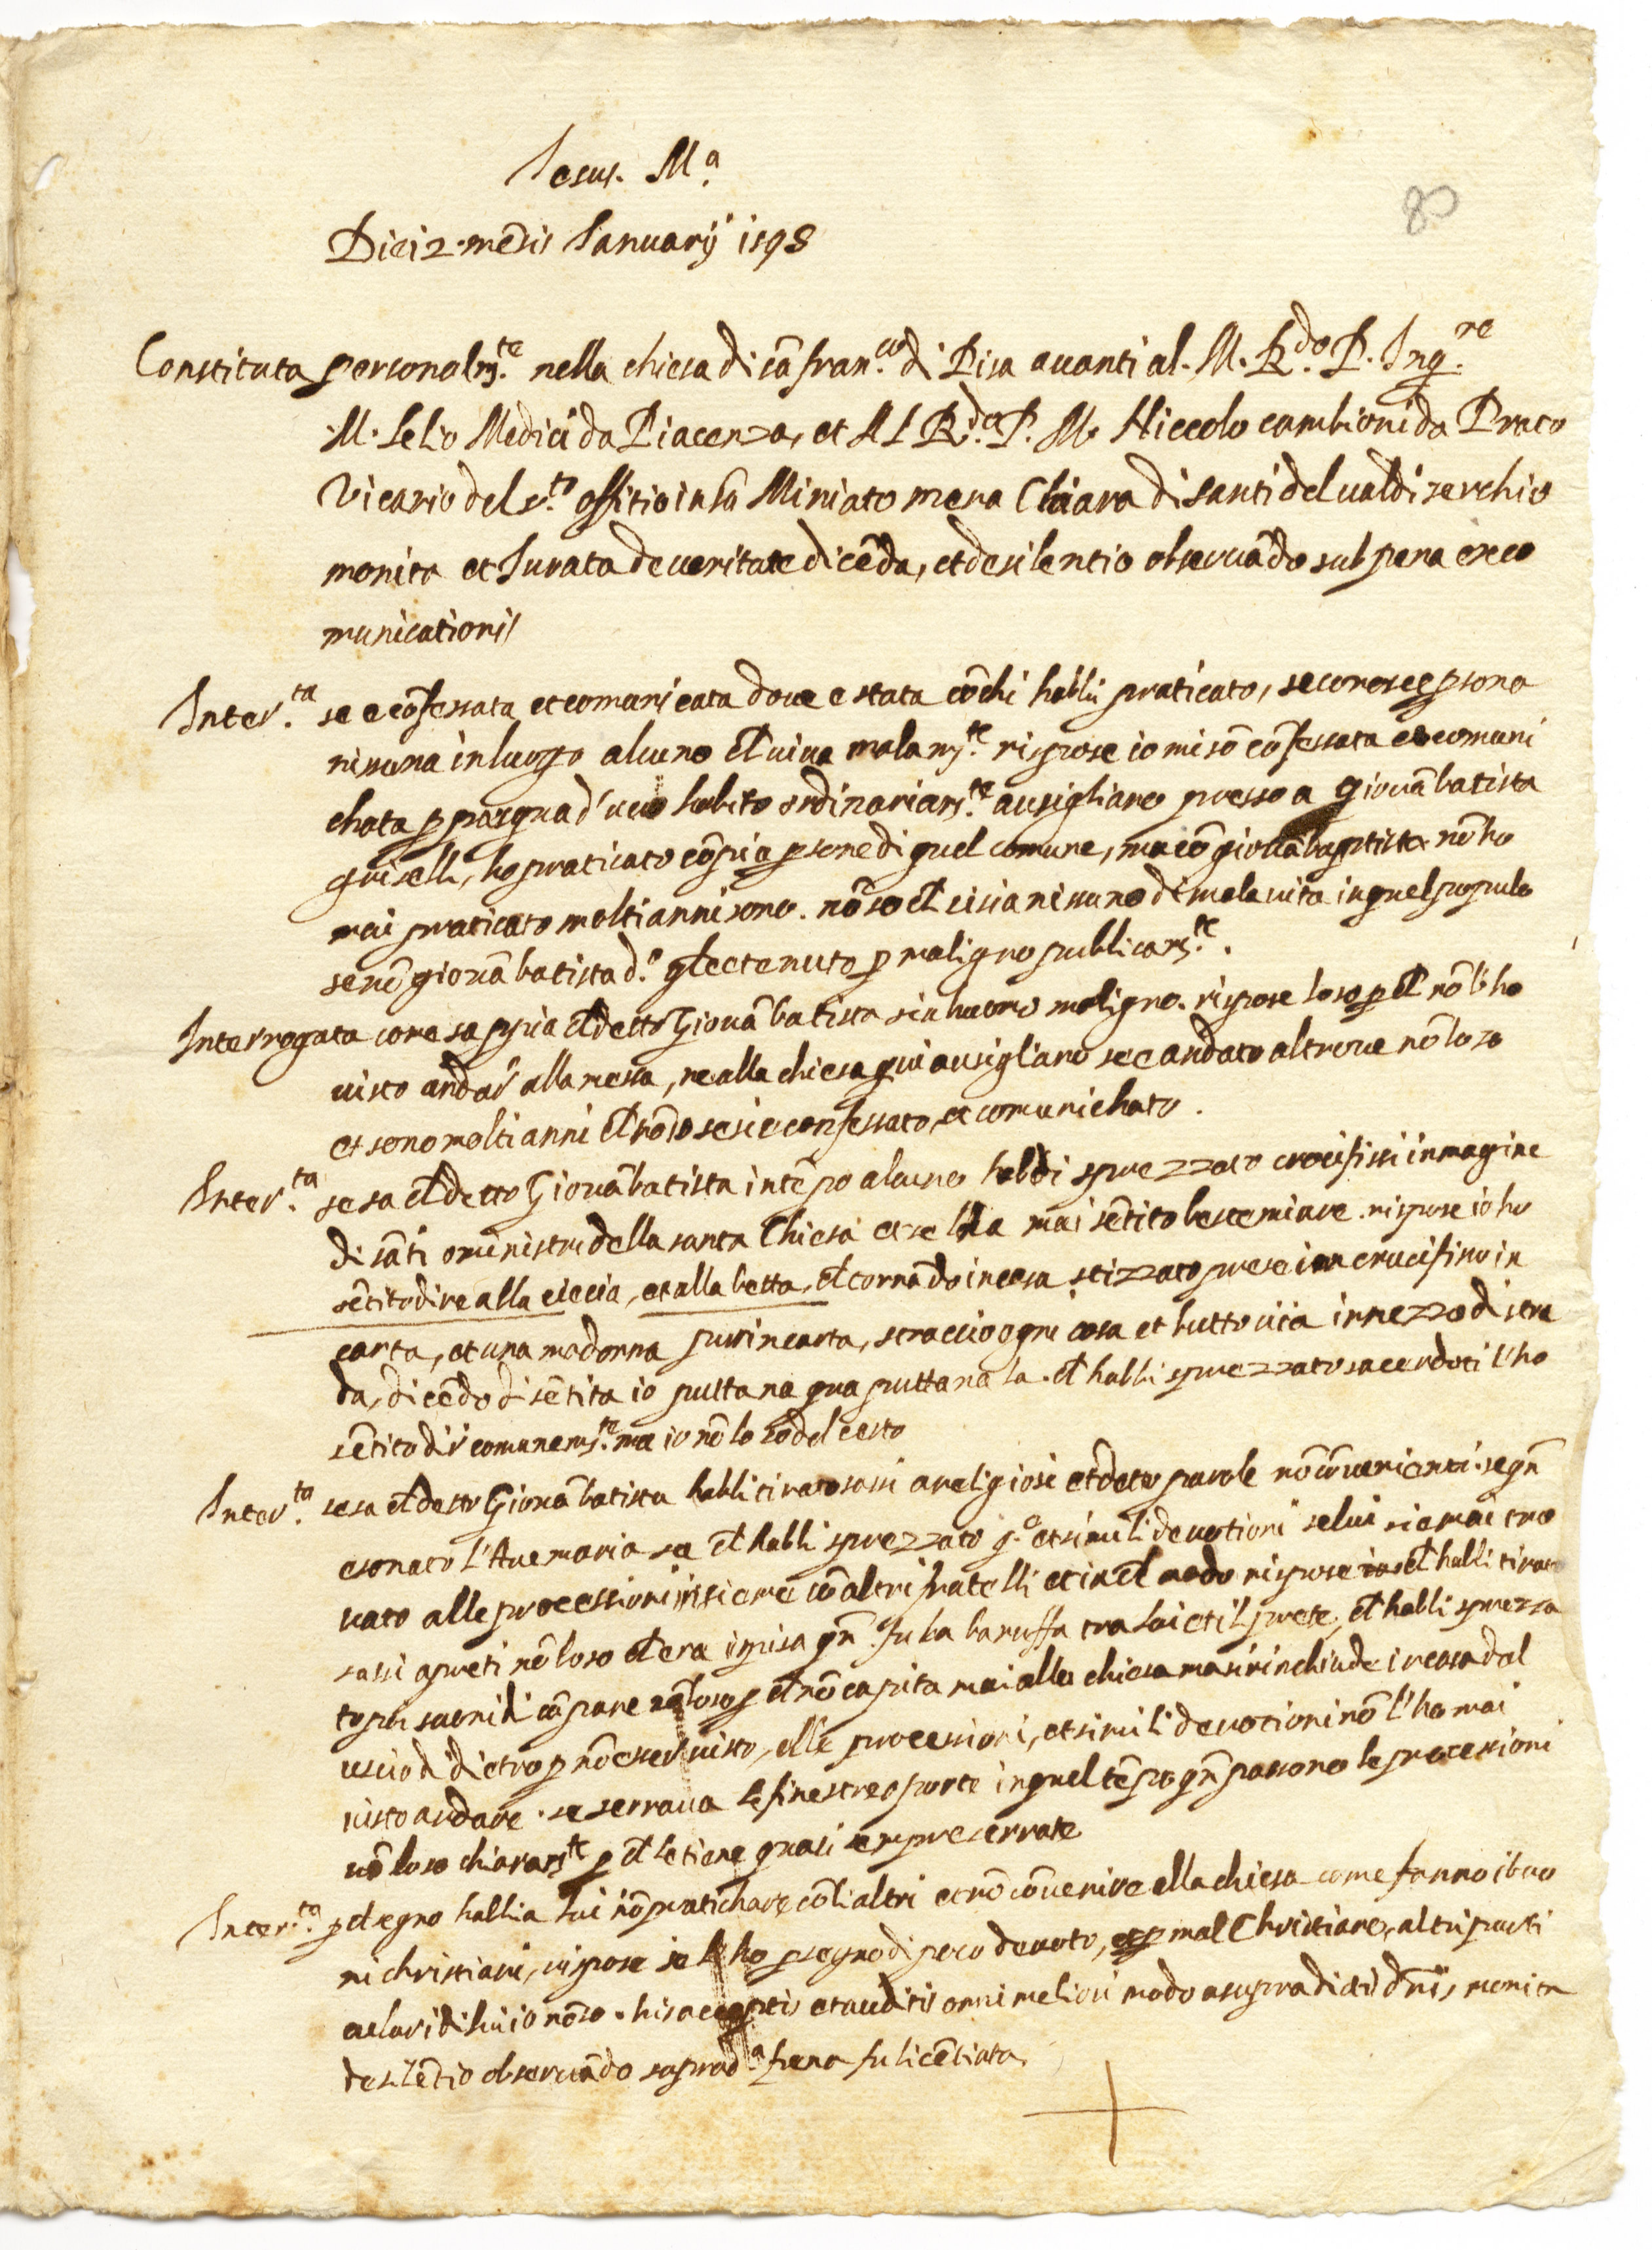 Iesus. M.a
80
Die 12 mēsis Ianuarij 1598
Constituta personalm.te nella chiesa di sā fran.co di Pisa auanti al. M. R.do P. Inq.re
M. Lelio Medici da Piacenza, et Al R.do P. M. Niccolo cambioni da Prato
Vicario del s.to offitio in sā Miniato mona Chiara di santi del ual di serchio
monita et Iurata de ueritate dicēda, et de silentio obseruādo sub pena exco
municationis
Inter.ta se e cōfessata et comunicata doue e stata cō chi habbi praticato, se conosce psona
nissuna in luogo alcuno ch uiua malam.te rispose io mi sō cōfessata et comuni
chata p pasqua d'uuo subito ordinariam.te auigliano presso a giouābatista
griselli, ho praticato cō piu psone di quel comune, ma cō giouābaptista nō ho
mai praticato molti anni sono. nō so ch ci sia nissuno di mala uita in quel populo
se nō giouābatista d.o ch e tenuto p maligno publicam.te.
Interrogata come sappia ch detto Giouābatista sia huomo maligno. rispose lo so p ch nō l'ho
uisto andar alla messa, ne alla chiesa qui auigliano se e andato altroue nō lo so
et sono molti anni ch nō so se si e confessato, et comunichato.
Inter.ta se sa ch detto Giouābatista in tēpo alcuno habbi sprezzato crocifissi inmagine
di sāti o ministri della santa Chiesa et se l'ha mai sētito bestemiare. rispose io ho
sētito dire alla ciecia, et alla betta, ch tornādo in casa stizzato prese un crucifisso in
carta, et una madonna pur in carta, straccio ogni cosa et butto uia in mezzo di stra
da, dicēdo di sētita io puttana qua puttana la. ch habbi sprezzato sacerdoti l'ho
sētito dir comunem.te ma io nō lo so del certo
Inter.ta se sa ch detto Giouābatista habbi tirato sassi a religiosi et detto parole nō cōuenienti. se qn̄
e sonato l'Auemaria sa ch habbi sprezzato q.o et simili deuotioni se lui si e mai tro
uato alle processioni insieme cō altri fratelli et in ch modo rispose ch habbi tirato
sassi a preti nō lo so ch era in pisa qn̄ fu la baruffa tra lui et il prete, ch habbi sprezza
to pli suoni di cāpane nō lo so p ch nō capita mai alla chiesa ma si rinchiude in casa dal
uscio di dietro p nō esser uisto, alle processioni, et simili deuotioni nō l'ho mai
uisto andare. se serraua le finestre o porte in quel tēpo qn̄ passono le processioni
nō lo so chiaram.te p ch le tiene quasi sempre serrate
Inter.ta p ch segno habbia lui nō pratichare cō li altri et nō cōuenire alla chiesa come fanno i buo
ni christiani, rispose io l'ho p segno di poco deuoto, et p mal Christiano, altri parti
culari di lui io nō so. his acceptis et auditis omni meliori modo a supradicti dn̄is, monita
de silētio obseruādo sup.rad.a pena fu licētiata.